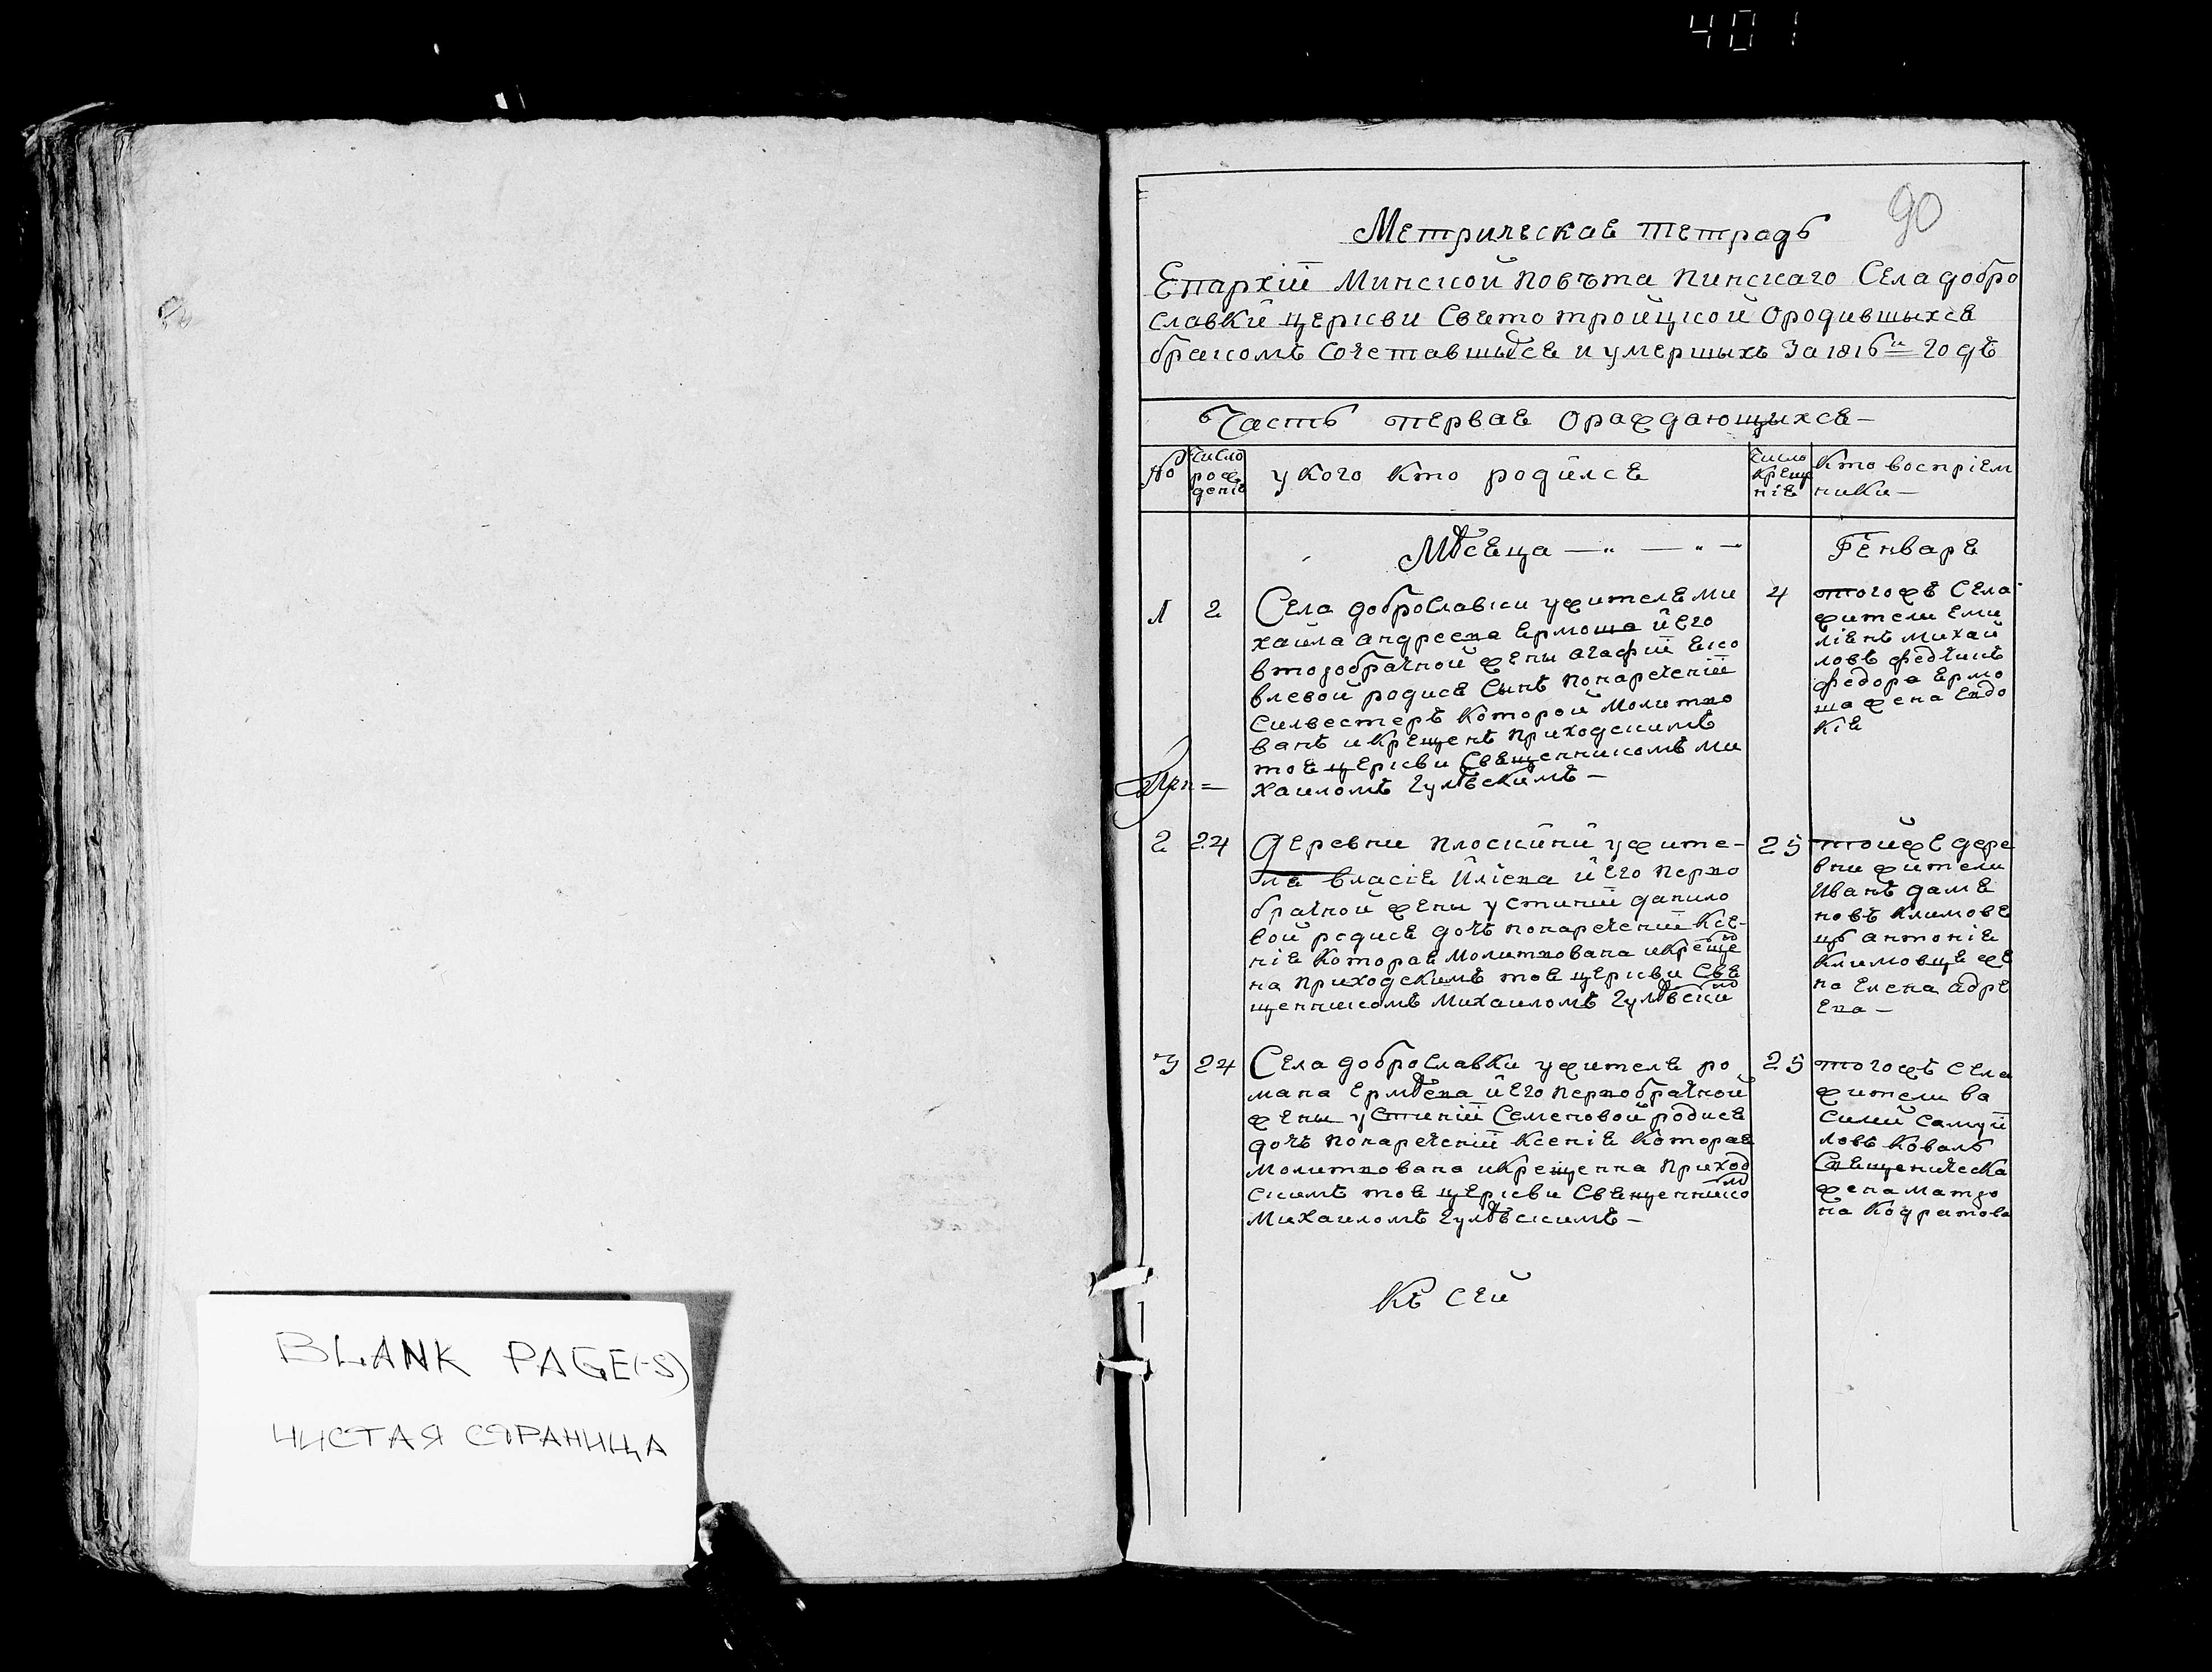 401
90
Метрическаѧ тетрадь
Епархіи Минской повѣта пинскаго Села добро
славки церкви Свѧто троицкой Ородившыхсѧ
бракомъ Сочетавшыхсѧ и умершыхъ За 1816й годъ
Часть перваѧ Ораждающыхсѧ —
№ Число рождениѧ
укого кто родилсѧ
Число крещениѧ
кто воспріем
ники —
Мѣсѧца — „ — „ —
Генварѧ
1 2
Села доброславки ужителѧ ми
хаила андреева Ермоша и Его
второбрачной жены агафіи Яко
влевой родисѧ Сынъ понаречений
Силвестеръ которой молитво
ванъ и крещенъ приходскимъ
тоѧ церкви Свѧщенникомъ ми
хаиломъ гулѣвскимъ —
4
тогожъ Села
жители Еми
лiѧнъ михай
ловъ федчинъ
федора Ермо
ша жена Евдо
кіѧ
2 24
Деревни плоскини ужите-
лѧ власіѧ Иліева и Его перво
брачной жены устиніи данило
вой родисѧ дочъ понаречений Ксе-
ніѧ котораѧ молитвована и креще
на приходскимъ тоѧ церкви Свѧ
щенникомъ михаиломъ гулѣвски
25
тойже дере
вни жители
Иванъ дамѧ
новъ климове
ць антоніѧ
климовцѧ же
на Елена адрѧ
ева —
3 24
Села доброславки ужителѧ ро
мана Ермѣева и Его первобрачной
жены устиніи Семеновой родисѧ
дочъ понаречений ксеніѧ котораѧ
молитвована и крещенна приход
скимъ тоѧ церкви Свѧщеннико
михаиломъ гулѣвскимъ —
25
тогожъ Села
жители ва
силий Самуй
ловъ коваль
Свѧщеническа
жена матро
на кодратова
Къ Сей
BLANK PAGE(-S)
ЧИСТАЯ СТРАНИЦА